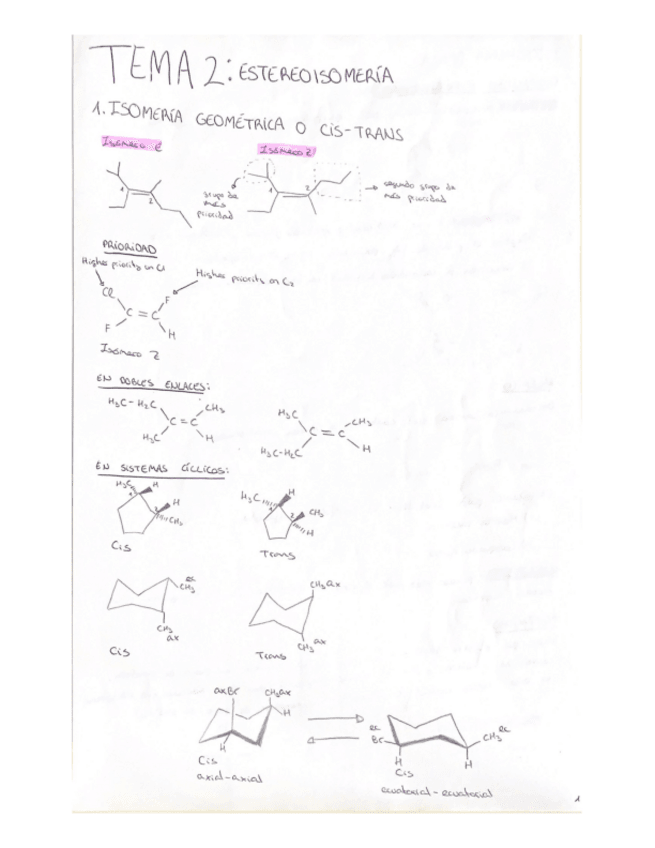 TEMA 2: ESTEREOISOMERÍA
1. ISOMERÍA GEOMÉTRICA O CIS-TRANS
Isómero E
Isómero Z
1
2
1
2
grupo de
más
prioridad
segundo grupo de
más prioridad
PRIORIDAD
Higher priority on C1
Higher priority on C2
Cl
F
C = C
F
H
Isómero Z
EN DOBLES ENLACES:
H3C-H2C
CH3
C = C
H3C
H
H3C
CH3
C = C
H3C-H2C
H
EN SISTEMAS CÍCLICOS:
H3C
H
H
CH3
Cis
H3C
H
CH3
H
Trans
ec
CH3
CH3
ax
Cis
CH3 ax
CH3
ax
Trans
axBr
CH3ax
H
H
Cis
axial-axial
ec
Br
CH3
ec
H
H
Cis
ecuatorial-ecuatorial
1